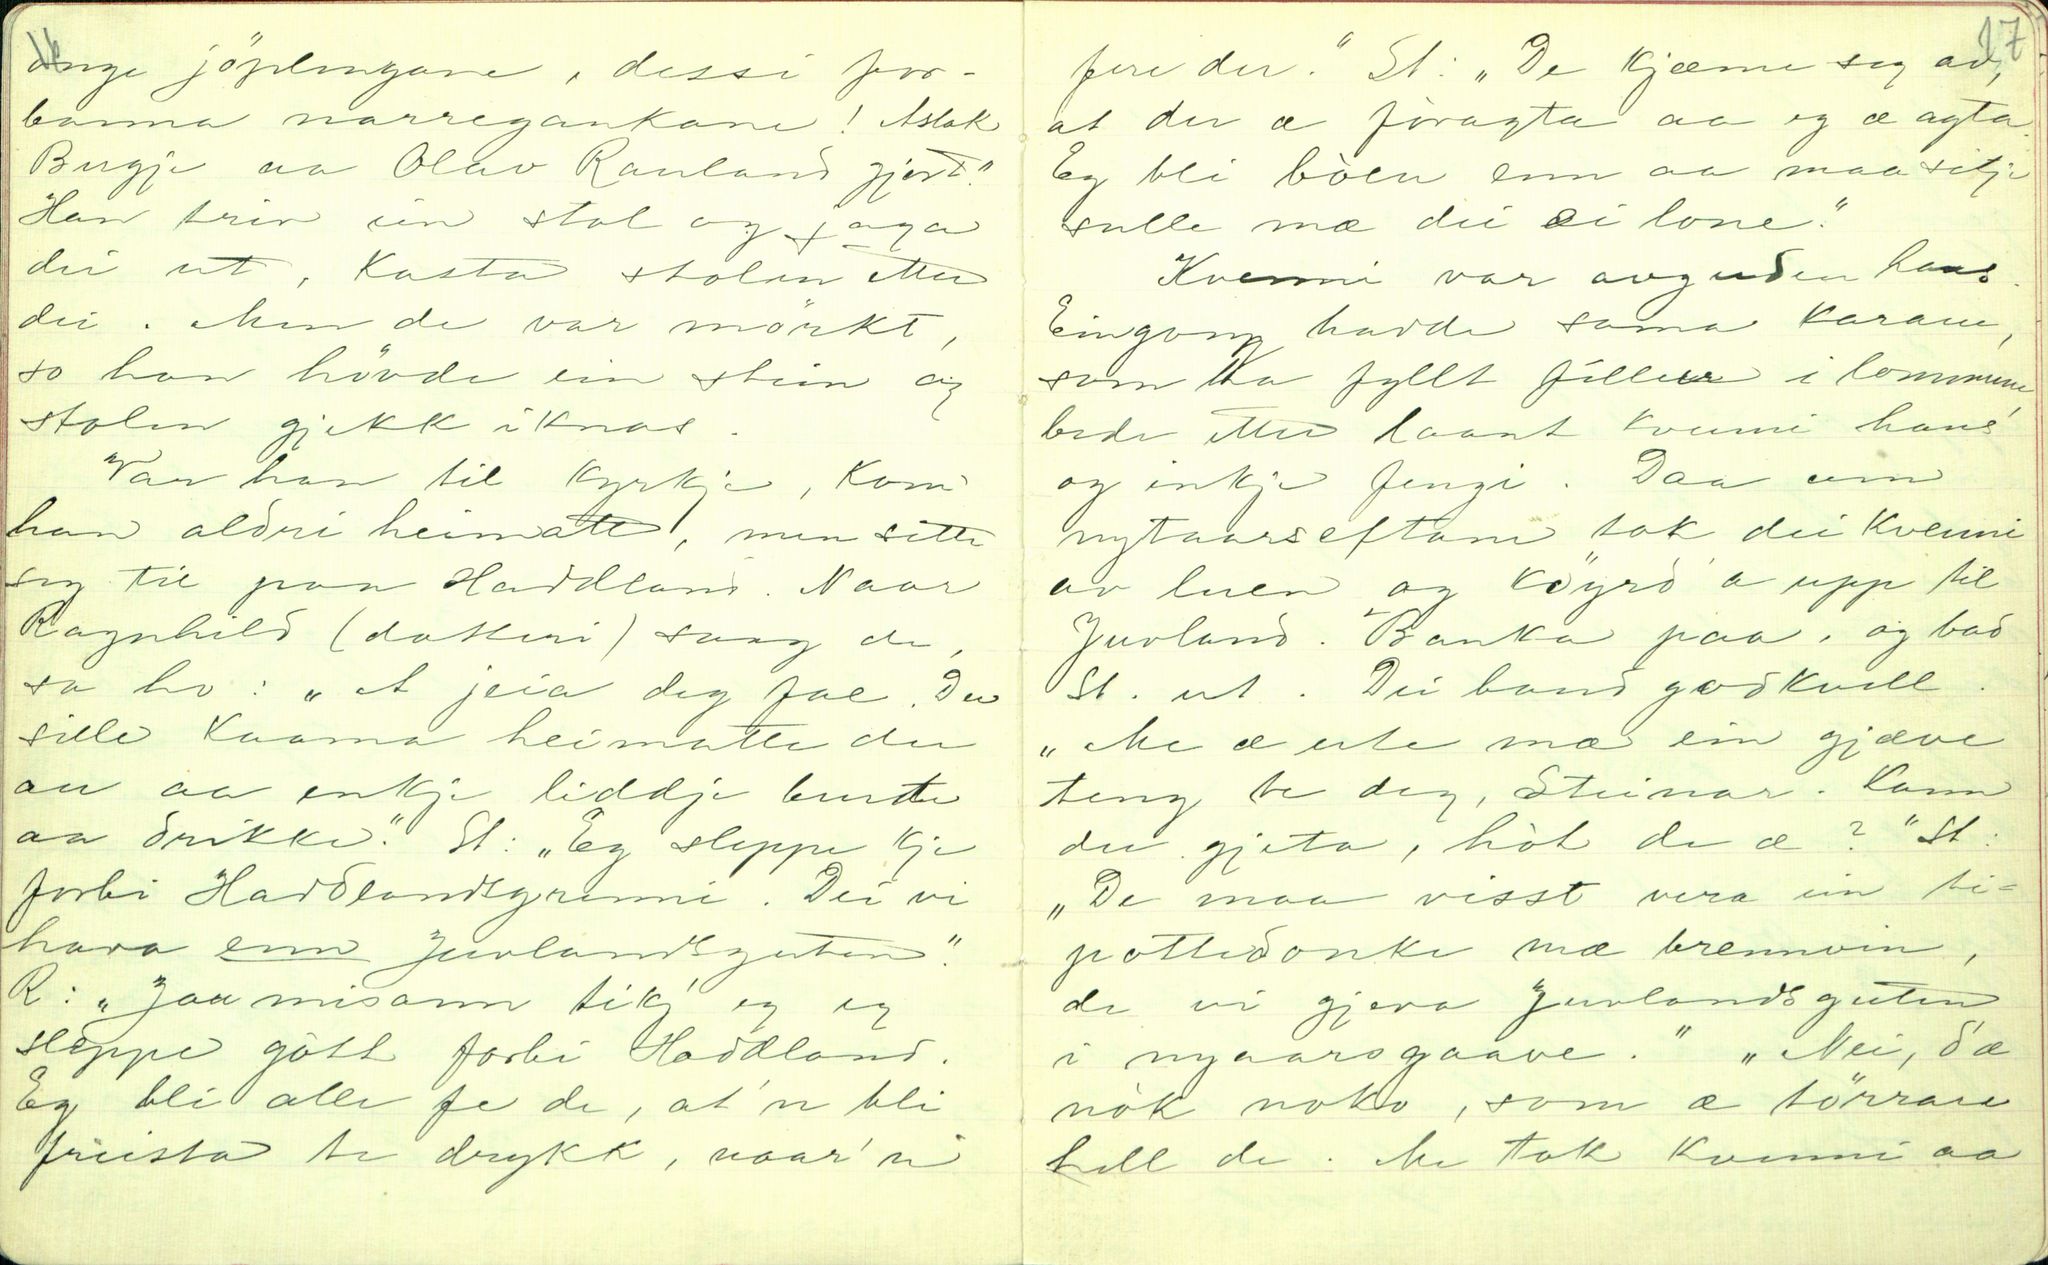 unge jöplingane, dessi for-
banna narregaukane! Aslak
Bugje aa Olav Rauland gjort."
Han treiv ein stol og jaga
dei ut, kasta stolen etter
dei. Men de var mörkt,
so han hövde ein stein og
stolen gjekk i knas.
Var han til kyrkje, kom
han aldri heimatte, men sette
seg til paa Haddland. Naar
Ragnhild (dotteri) saag de,
sa ho: „At jeia deg fae. Du
sille kaama heimatte du
au aa enkje liddje burte
aa drikke." St: „Eg sleppe kje
forbi Haddlandsgrenni. Dei vi
hava enn Juvlandsguten".
R: „Jaa misann tikj eg eg
sleppe gòtt forbi Haddland.
Eg bli alle fe de, at 'n bli
freista te drykk, naar 'n
17
fere der." St: „De kjæme seg av,
at du æ foragta aa eg æ agta.
Eg bli bòen enn aa maa sitje
sulle mæ dei ei lone."
Kvenni var avguden hans.
Eingong hadde sama karane,
som ha fyllt filler i lommune
bede etter laant kvenni hans
og inkje fengi. Daa um
nytaarseftane tok dei kvenni
av luen og köyrd' a upp til
Juvland. Banka paa, og bad
St. ut. Dei baud godkvell.
„Me æ ute mæ ein gjæve
teng te deg, Steinar. Kann
du gjeta, hòt de æ?" St:
„De maa visst vera ein ti-
pottedonke mæ brennvin,
de vi gjeva Juvlandsguten
i nyaarsgaave." „Nei, d'æ
nòk noko, som æ törrare
hell de. Me tok kvenni aa